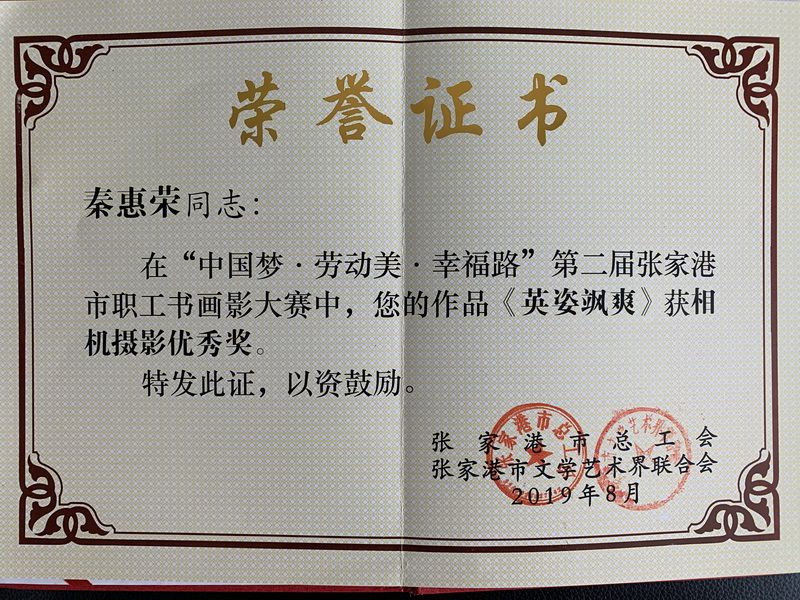 荣誉证书
秦惠荣同志：
在“中国梦·劳动美·幸福路”第二届张家港
市职工书画影大赛中，您的作品《英姿飒爽》获相
机摄影优秀奖。
特发此证，以资鼓励。
张家港市总工会
张家港市文学艺术界联合会
2019年8月
张家港市总工会